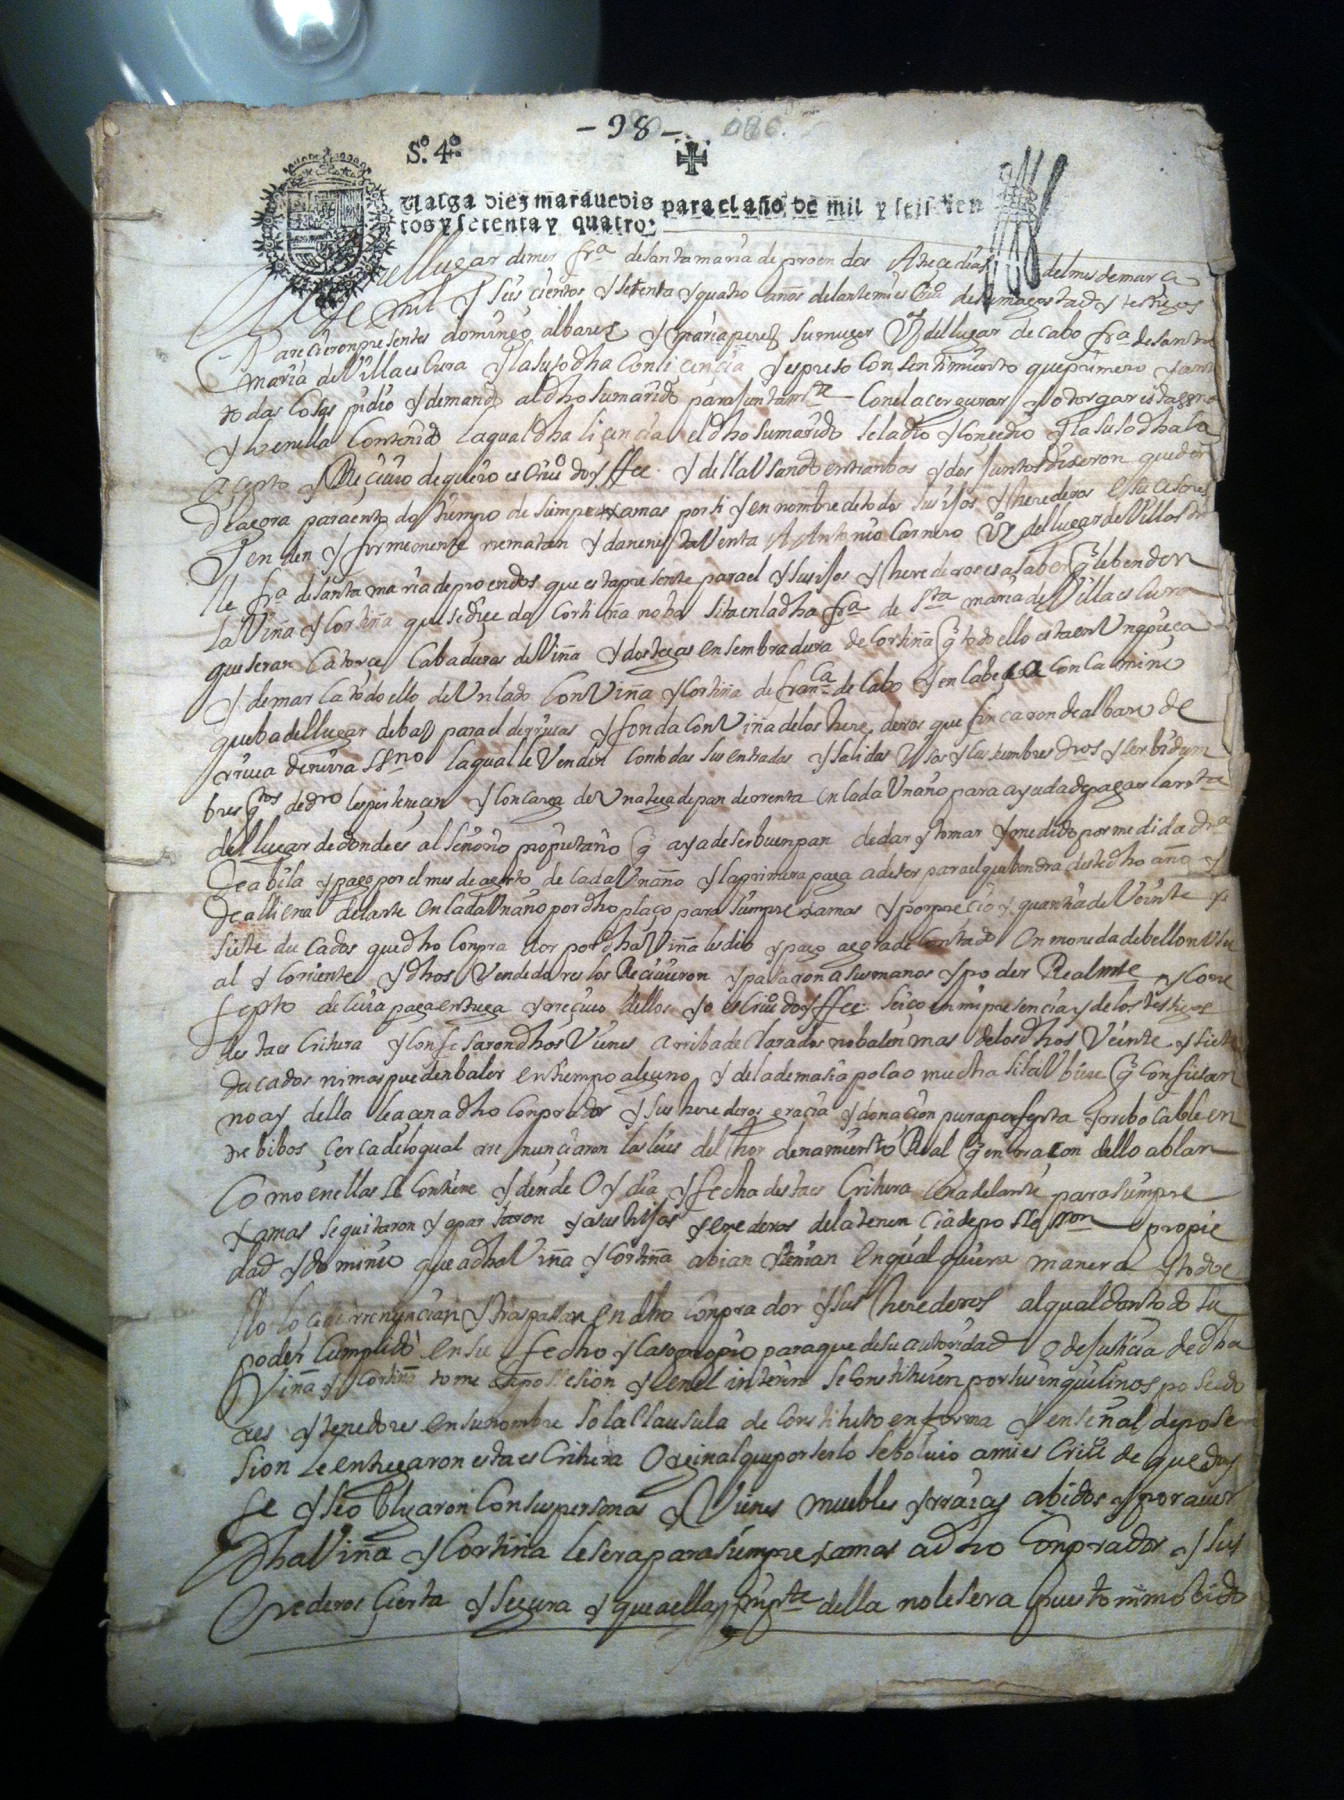 - 98 - 086.
S.º 4.º
Valga diez marauedis para el año de mil y seiscien
tos y setenta y quatro.
En el lugar de mer frª de santa maria de proendos A trece dias del mes de março
de mil y seis cientos y setenta y quatro años delante mi esCriuº de su magestad y testigos
Parecieron presentes domingo albarez y maria perez su muger Vzs del lugar de cabo frª de santa
maria de VillaesCura y la susodha Con liçençia y espreso Consentimiento que primero y ante
todas Cosas pidio y demando al dho su marido para juntamte Con el açer y jurar y otorgar esta essnª
y lo en ella Contenido la qual dha liçençia el dho su marido se la dio y Conçedio y la susodha la
açepto y Reciuio de que io esCriuº doy ffee y della Vsando entranbos y dos Juntos dixeron que des
de agora para en todo tienpo de sienpre xamas por si y en nonbre de todos sus ijos y herederos e suçesores
Venden y firmemente rematan y dan en esta Venta A Antonio Carnero Vzº del lugar de Villar de
lle frª de santa maria de proendos que esta presente para el y sus ijos y herederos es a saber q le benden
La Viña y Cortiña que se diçe da Cortiña noba sita en la dha frª de Sta maria de Villaescura
que seran Catorce Cabaduras de Viña y dos tegas en sembradura de Cortiña q todo ello esta en Vn
y demarCa todo ello de Vn lado Con Viña y Cortiña de franca de Cabo y en Cabeça Con Camino
que ba del lugar de bal para el de y fonda Con Viña de los herederos que fincaron de albaro de
la qual le Venden Con todas sus entradas y salidas Vsos y Custumbres dros y serbidun
bres qtos de dro les perteneçen y Con Carga de Vna tega de pan de rrenta en Cada Vn año para ayuda de pagar la rta
del lugar de donde es al Señorio propietario q aya de ser buen pan de dar y tomar y medido por medida dra
de abila y pago por el mes de agosto de Cada Vn año y la primera paga a de ser para el que bendra deste dho año y
de alli en adelante en Cada Vn año por dho plaço para sienpre xamas y por preçio y quantia de Veinte y
siete ducados que dho Conprador por dha Viña les dio y pago de Contado En moneda de bellon Vsu
al y Coriente y dhos Vendedores los Reciuieron y pasaron a sus manos y poder Realmte y Con e
fecto de Cuia paga entrega y rreciuo dellos yo esCriuº doy ffee se iço en mi presencia y de los testigos
desta esCritura y Confesaron dhos Vienes arriba deClarados no balen mas de los dhos Veinte y siete
ducados ni mas pueden baler en tiempo alguno y de la demasia poCa o mucha si la Vbiere q Confiesan
no ay della açen a dho Conprador y sus herederos graçia y donaçion pura perfeta yrrebocable en
tre bibos çerca de lo qual rrenunçiaron las leies del hordenamiento Real q en raçon dello ablan
Como en ellas se Contiene y dende Oy dia y fecha desta esCritura en adelante para siempre
xamas se quitaron y apartaron y a sus hijos y erederos de la tenençia de possesion propie
dad y dominio que a dha Viña y Cortiña abian y tenian en qualquiera manera y todo e
llo lo ceden renunçian y traspassan en dho Conprador y sus herederos al qual dan todo su
poder Cumplido en su fecho y Caso propio para que de su autoridad o de justiçia de dha
Viña y Cortiña tome la possesion y en el interin se Constituien por sus inquilinos poseedo
res y tenedores en su nonbre so la Clausula de Constituto en forma y en señal de pose
sion le entregaron esta esCritura Oreginal que por serlo se bolvio a mi esCriuº de que doy
fe y se obligaron Con sus personas y Vienes muebles y rraizes abidos y por auer
dha Viña y Cortiña le sera para siempre xamas a dho Conprador y sus
Erederos Çierta y Segura y que a ella ny pte della no le sera puesto ni mobido